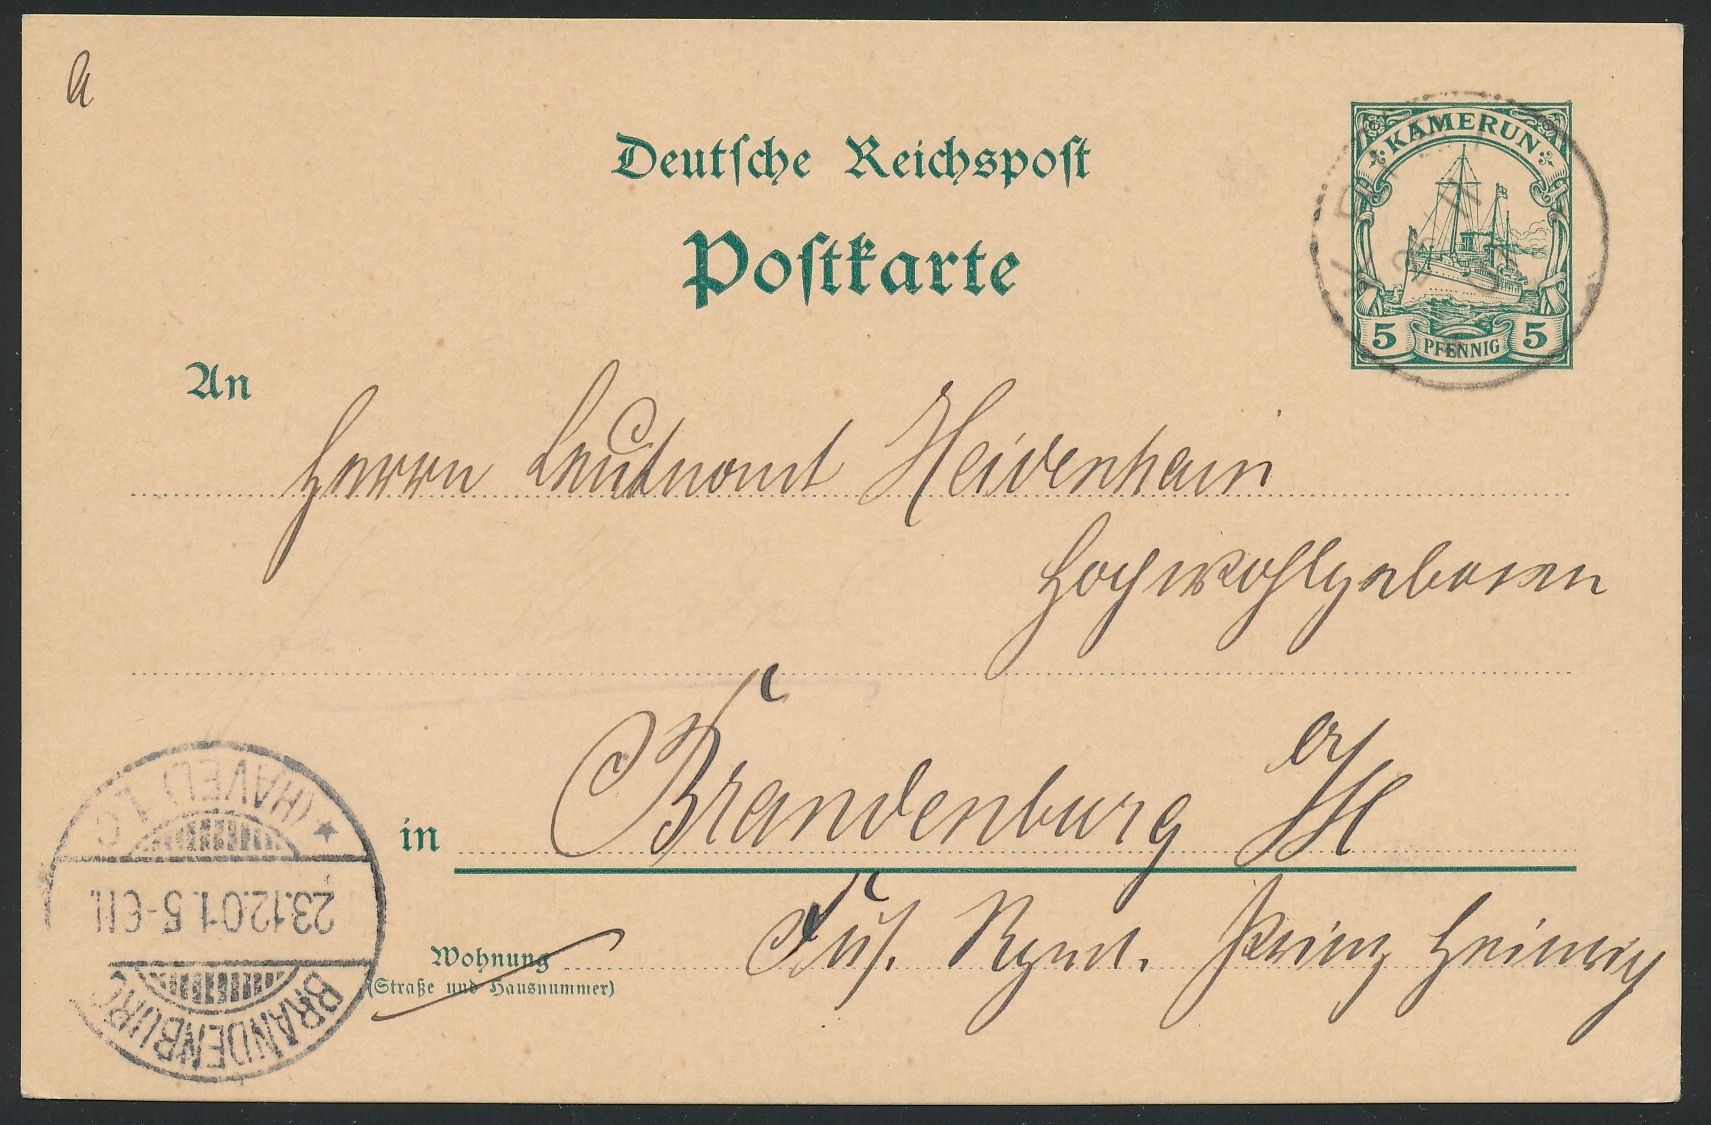 a
Deutsche Reichspost
Postkarte
KAMERUN
5 PFENNIG 5
An
Herrn Leutnant Heidenhain
Hochwohlgeboren
in Brandenburg a/H
Wohnung
(Straße und Hausnummer)
Füs. Rgmt. Prinz Heinrich
BRANDENBURG
23.12.01. 5-6N.
* (HAVEL) 1. C